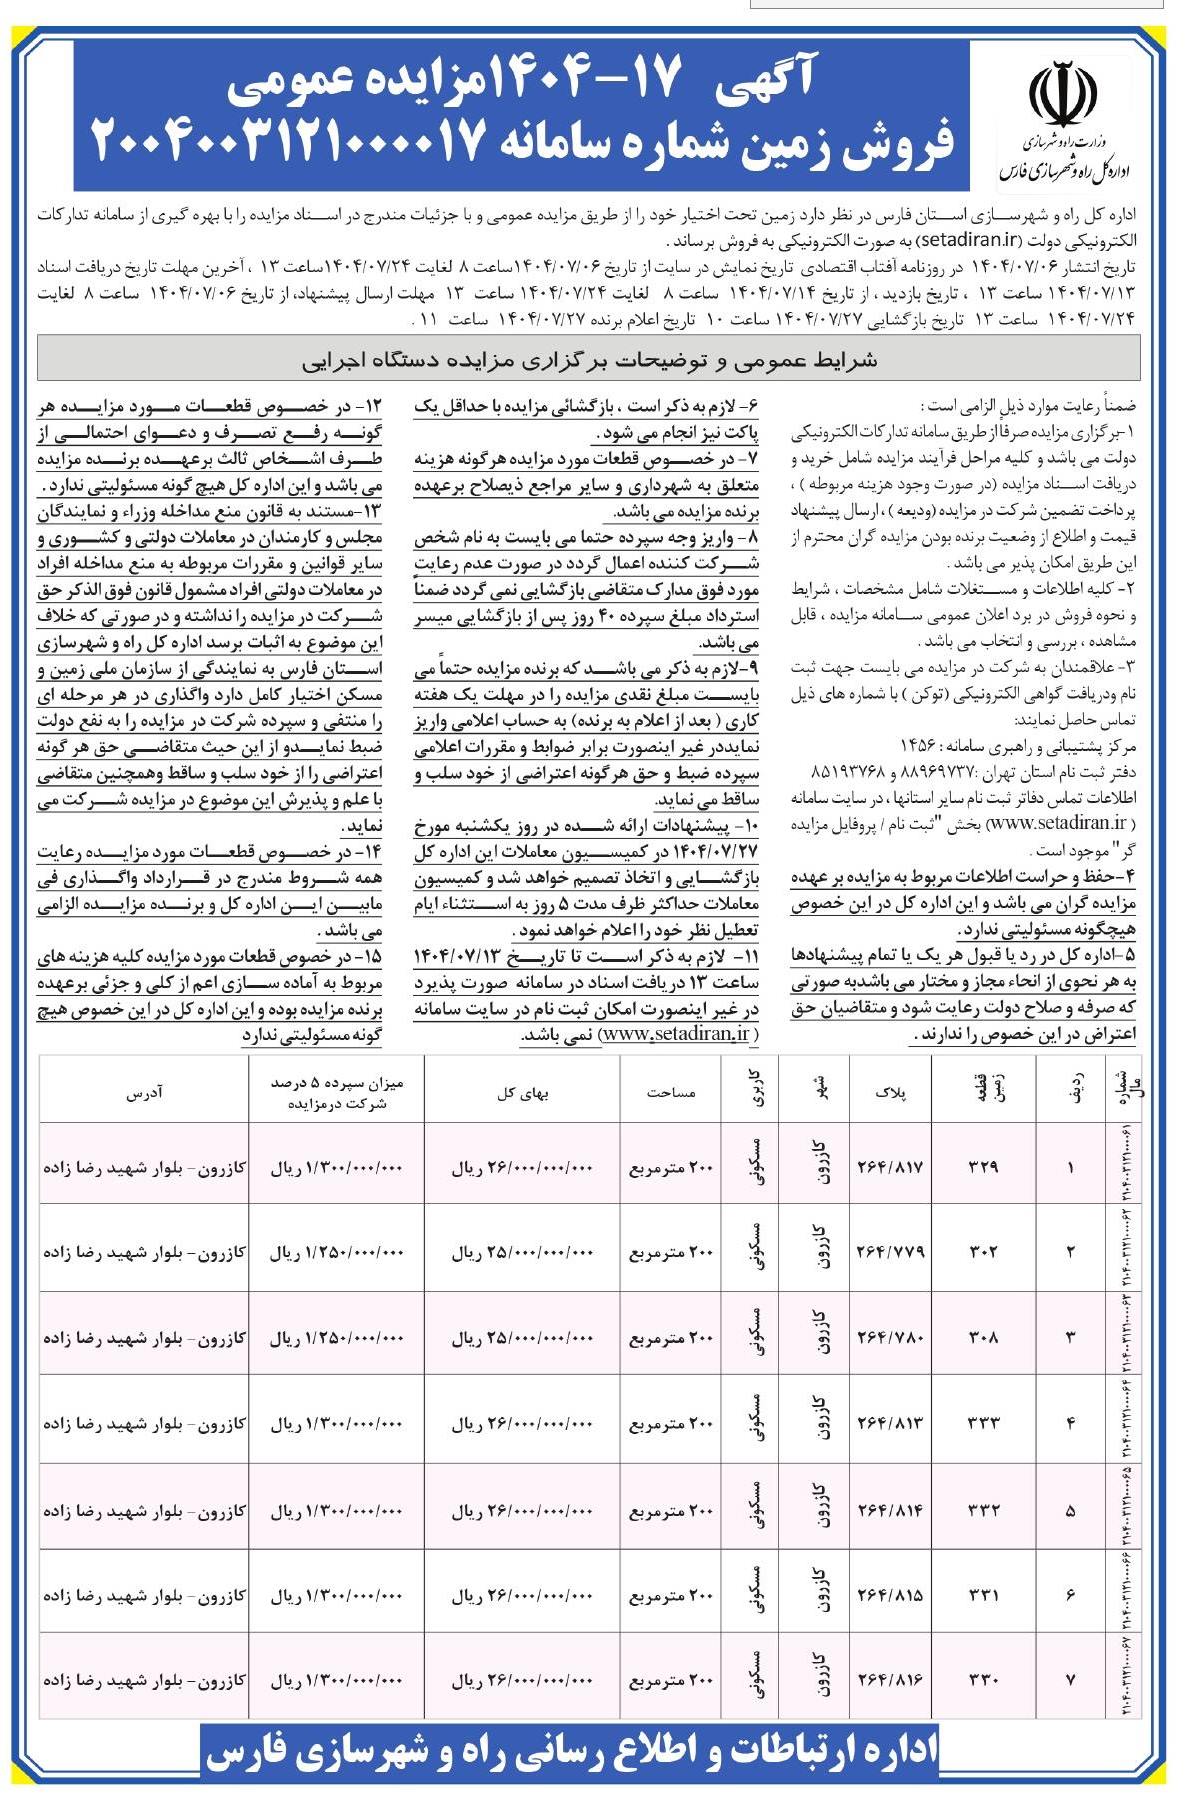 آگهی ۱۷-۱۴۰۴مزایده عمومی
فروش زمین شماره سامانه ۲۰۰۴۰۰۳۱۲۱۰۰۰۰۱۷
وزارت راه و شهرسازی
اداره کل راه و شهرسازی فارس
اداره کل راه و شهرسـازی اسـتان فارس در نظر دارد زمین تحت اختیار خود را از طریق مزایده عمومی و با جزئیات مندرج در اسـناد مزایده را با بهره گیری از سامانه تدارکات
الکترونیکی دولت (setadiran.ir) به صورت الکترونیکی به فروش برساند .
تاریخ انتشار ۱۴۰۴/۰۷/۰۶ در روزنامه آفتاب اقتصادی تاریخ نمایش در سایت از تاریخ ۱۴۰۴/۰۷/۰۶ساعت ۸ لغایت ۱۴۰۴/۰۷/۲۴ساعت ۱۳ ، آخرین مهلت تاریخ دریافت اسناد
۱۴۰۴/۰۷/۱۳ ساعت ۱۳ ، تاریخ بازدید ، از تاریخ ۱۴۰۴/۰۷/۱۴ ساعت ۸ لغایت ۱۴۰۴/۰۷/۲۴ ساعت ۱۳ مهلت ارسال پیشنهاد، از تاریخ ۱۴۰۴/۰۷/۰۶ ساعت ۸ لغایت
۱۴۰۴/۰۷/۲۴ ساعت ۱۳ تاریخ بازگشایی ۱۴۰۴/۰۷/۲۷ ساعت ۱۰ تاریخ اعلام برنده ۱۴۰۴/۰۷/۲۷ ساعت ۱۱ .
شرایط عمومی و توضیحات برگزاری مزایده دستگاه اجرایی
ضمناً رعایت موارد ذیل الزامی است :
۱-برگزاری مزایده صرفاً از طریق سامانه تدارکات الکترونیکی
دولت می باشد و کلیه مراحل فرآیند مزایده شامل خرید و
دریافت اسـناد مزایده (در صورت وجود هزینه مربوطه ) ،
پرداخت تضمین شرکت در مزایده (ودیعه ) ، ارسال پیشنهاد
قیمت و اطلاع از وضعیت برنده بودن مزایده گران محترم از
این طریق امکان پذیر می باشد .
۲- کلیه اطلاعات و مسـتغلات شامل مشخصات ، شرایط
و نحوه فروش در برد اعلان عمومی سـامانه مزایده ، قابل
مشاهده ، بررسی و انتخاب می باشد .
۳- علاقمندان به شرکت در مزایده می بایست جهت ثبت
نام ودریافت گواهی الکترونیکی (توکن ) با شماره های ذیل
تماس حاصل نمایند:
مرکز پشتیبانی و راهبری سامانه : ۱۴۵۶
دفتر ثبت نام استان تهران : ۸۸۹۶۹۷۳۷ و ۸۵۱۹۳۷۶۸
اطلاعات تماس دفاتر ثبت نام سایر استانها ، در سایت سامانه
( www.setadiran.ir) بخش "ثبت نام / پروفایل مزایده
گر" موجود است .
۴-حفظ و حراست اطلاعات مربوط به مزایده بر عهده
مزایده گران می باشد و این اداره کل در این خصوص
هیچگونه مسئولیتی ندارد.
۵-اداره کل در رد یا قبول هر یک یا تمام پیشنهادها
به هر نحوی از انحاء مجاز و مختار می باشدبه صورتی
که صرفه و صلاح دولت رعایت شود و متقاضیان حق
اعتراض در این خصوص را ندارند .
۶- لازم به ذکر است ، بازگشائی مزایده با حداقل یک
پاکت نیز انجام می شود .
۷- در خصوص قطعات مورد مزایده هرگونه هزینه
متعلق به شهرداری و سایر مراجع ذیصلاح برعهده
برنده مزایده می باشد.
۸- واریز وجه سپرده حتما می بایست به نام شخص
شرکت کننده اعمال گردد در صورت عدم رعایت
مورد فوق مدارک متقاضی بازگشایی نمی گردد ضمناً
استرداد مبلغ سپرده ۴۰ روز پس از بازگشایی میسر
می باشد.
۹-لازم به ذکر می باشـد که برنده مزایده حتماً می
بایسـت مبلغ نقدی مزایده را در مهلت یک هفته
کاری ( بعد از اعلام به برنده) به حساب اعلامی واریز
نمایددر غیر اینصورت برابر ضوابط و مقررات اعلامی
سپرده ضبط و حق هرگونه اعتراضی از خود سلب و
ساقط می نماید.
۱۰- پیشنهادات ارائه شده در روز یکشنبه مورخ
۱۴۰۴/۰۷/۲۷ در کمیسیون معاملات این اداره کل
بازگشـایی و اتخاذ تصمیم خواهد شد و کمیسیون
معاملات حداکثر ظرف مدت ۵ روز به اسـتثناء ایام
تعطیل نظر خود را اعلام خواهد نمود .
۱۱- لازم به ذکر اسـت تا تاریـخ ۱۴۰۴/۰۷/۱۳
ساعت ۱۳ دریافت اسناد در سامانه صورت پذیرد
در غیر اینصورت امکان ثبت نام در سایت سامانه
( www.setadiran.ir) نمی باشد.
۱۲- در خصـوص قطعـات مـورد مزایـده هر
گونـه رفـع تصـرف و دعـوای احتمالـی از
طـرف اشـخاص ثالث برعهـده برنـده مزایده
می باشد و این اداره کل هیچ گونه مسئولیتی ندارد .
۱۳-مستند به قانون منع مداخله وزراء و نمایندگان
مجلس و کارمندان در معاملات دولتی و کشـوری و
سایر قوانین و مقررات مربوطه به منع مداخله افراد
در معاملات دولتی افراد مشمول قانون فوق الذکر حق
شرکت در مزایده را نداشته و در صورتی که خلاف
این موضوع به اثبات برسد اداره کل راه و شهرسازی
اسـتان فارس به نمایندگی از سازمان ملی زمین و
مسکن اختیار کامل دارد واگذاری در هر مرحله ای
را منتفی و سپرده شرکت در مزایده را به نفع دولت
ضبط نمایـدو از این حیث متقاضـی حق هر گونه
اعتراضی را از خود سلب و ساقط وهمچنین متقاضی
با علم و پذیرش این موضوع در مزایده شـرکت می
نماید .
۱۴- در خصوص قطعـات مورد مزایـده رعایت
همه شـروط مندرج در قـرارداد واگـذاری فی
مابیـن ایـن اداره کل و برنـده مزایـده الزامـی
می باشد .
۱۵- در خصوص قطعات مورد مزایده کلیه هزینه های
مربوط به آماده سـازی اعم از کلی و جزئی برعهده
برنده مزایده بوده و این اداره کل در این خصوص هیچ
گونه مسئولیتی ندارد
شماره مال | ردیف | قطعه زمین | پلاک | شهر | کاربری | مساحت | بهای کل | میزان سپرده ۵ درصد شرکت درمزایده | آدرس
۲۱۰۴۰۰۳۱۲۱۰۰۰۰۶۱ | ۱ | ۳۲۹ | ۲۶۴/۸۱۷ | کازرون | مسکونی | ۲۰۰ مترمربع | ۲۶/۰۰۰/۰۰۰/۰۰۰ ریال | ۱/۳۰۰/۰۰۰/۰۰۰ ریال | کازرون- بلوار شهید رضا زاده
۲۱۰۴۰۰۳۱۲۱۰۰۰۰۶۲ | ۲ | ۳۰۲ | ۲۶۴/۷۷۹ | کازرون | مسکونی | ۲۰۰ مترمربع | ۲۵/۰۰۰/۰۰۰/۰۰۰ ریال | ۱/۲۵۰/۰۰۰/۰۰۰ ریال | کازرون- بلوار شهید رضا زاده
۲۱۰۴۰۰۳۱۲۱۰۰۰۰۶۳ | ۳ | ۳۰۸ | ۲۶۴/۷۸۰ | کازرون | مسکونی | ۲۰۰ مترمربع | ۲۵/۰۰۰/۰۰۰/۰۰۰ ریال | ۱/۲۵۰/۰۰۰/۰۰۰ ریال | کازرون- بلوار شهید رضا زاده
۲۱۰۴۰۰۳۱۲۱۰۰۰۰۶۴ | ۴ | ۳۳۳ | ۲۶۴/۸۱۳ | کازرون | مسکونی | ۲۰۰ مترمربع | ۲۶/۰۰۰/۰۰۰/۰۰۰ ریال | ۱/۳۰۰/۰۰۰/۰۰۰ ریال | کازرون- بلوار شهید رضا زاده
۲۱۰۴۰۰۳۱۲۱۰۰۰۰۶۵ | ۵ | ۳۳۲ | ۲۶۴/۸۱۴ | کازرون | مسکونی | ۲۰۰ مترمربع | ۲۶/۰۰۰/۰۰۰/۰۰۰ ریال | ۱/۳۰۰/۰۰۰/۰۰۰ ریال | کازرون- بلوار شهید رضا زاده
۲۱۰۴۰۰۳۱۲۱۰۰۰۰۶۶ | ۶ | ۳۳۱ | ۲۶۴/۸۱۵ | کازرون | مسکونی | ۲۰۰ مترمربع | ۲۶/۰۰۰/۰۰۰/۰۰۰ ریال | ۱/۳۰۰/۰۰۰/۰۰۰ ریال | کازرون- بلوار شهید رضا زاده
۲۱۰۴۰۰۳۱۲۱۰۰۰۰۶۷ | ۷ | ۳۳۰ | ۲۶۴/۸۱۶ | کازرون | مسکونی | ۲۰۰ مترمربع | ۲۶/۰۰۰/۰۰۰/۰۰۰ ریال | ۱/۳۰۰/۰۰۰/۰۰۰ ریال | کازرون- بلوار شهید رضا زاده
اداره ارتباطات و اطلاع رسانی راه و شهرسازی فارس